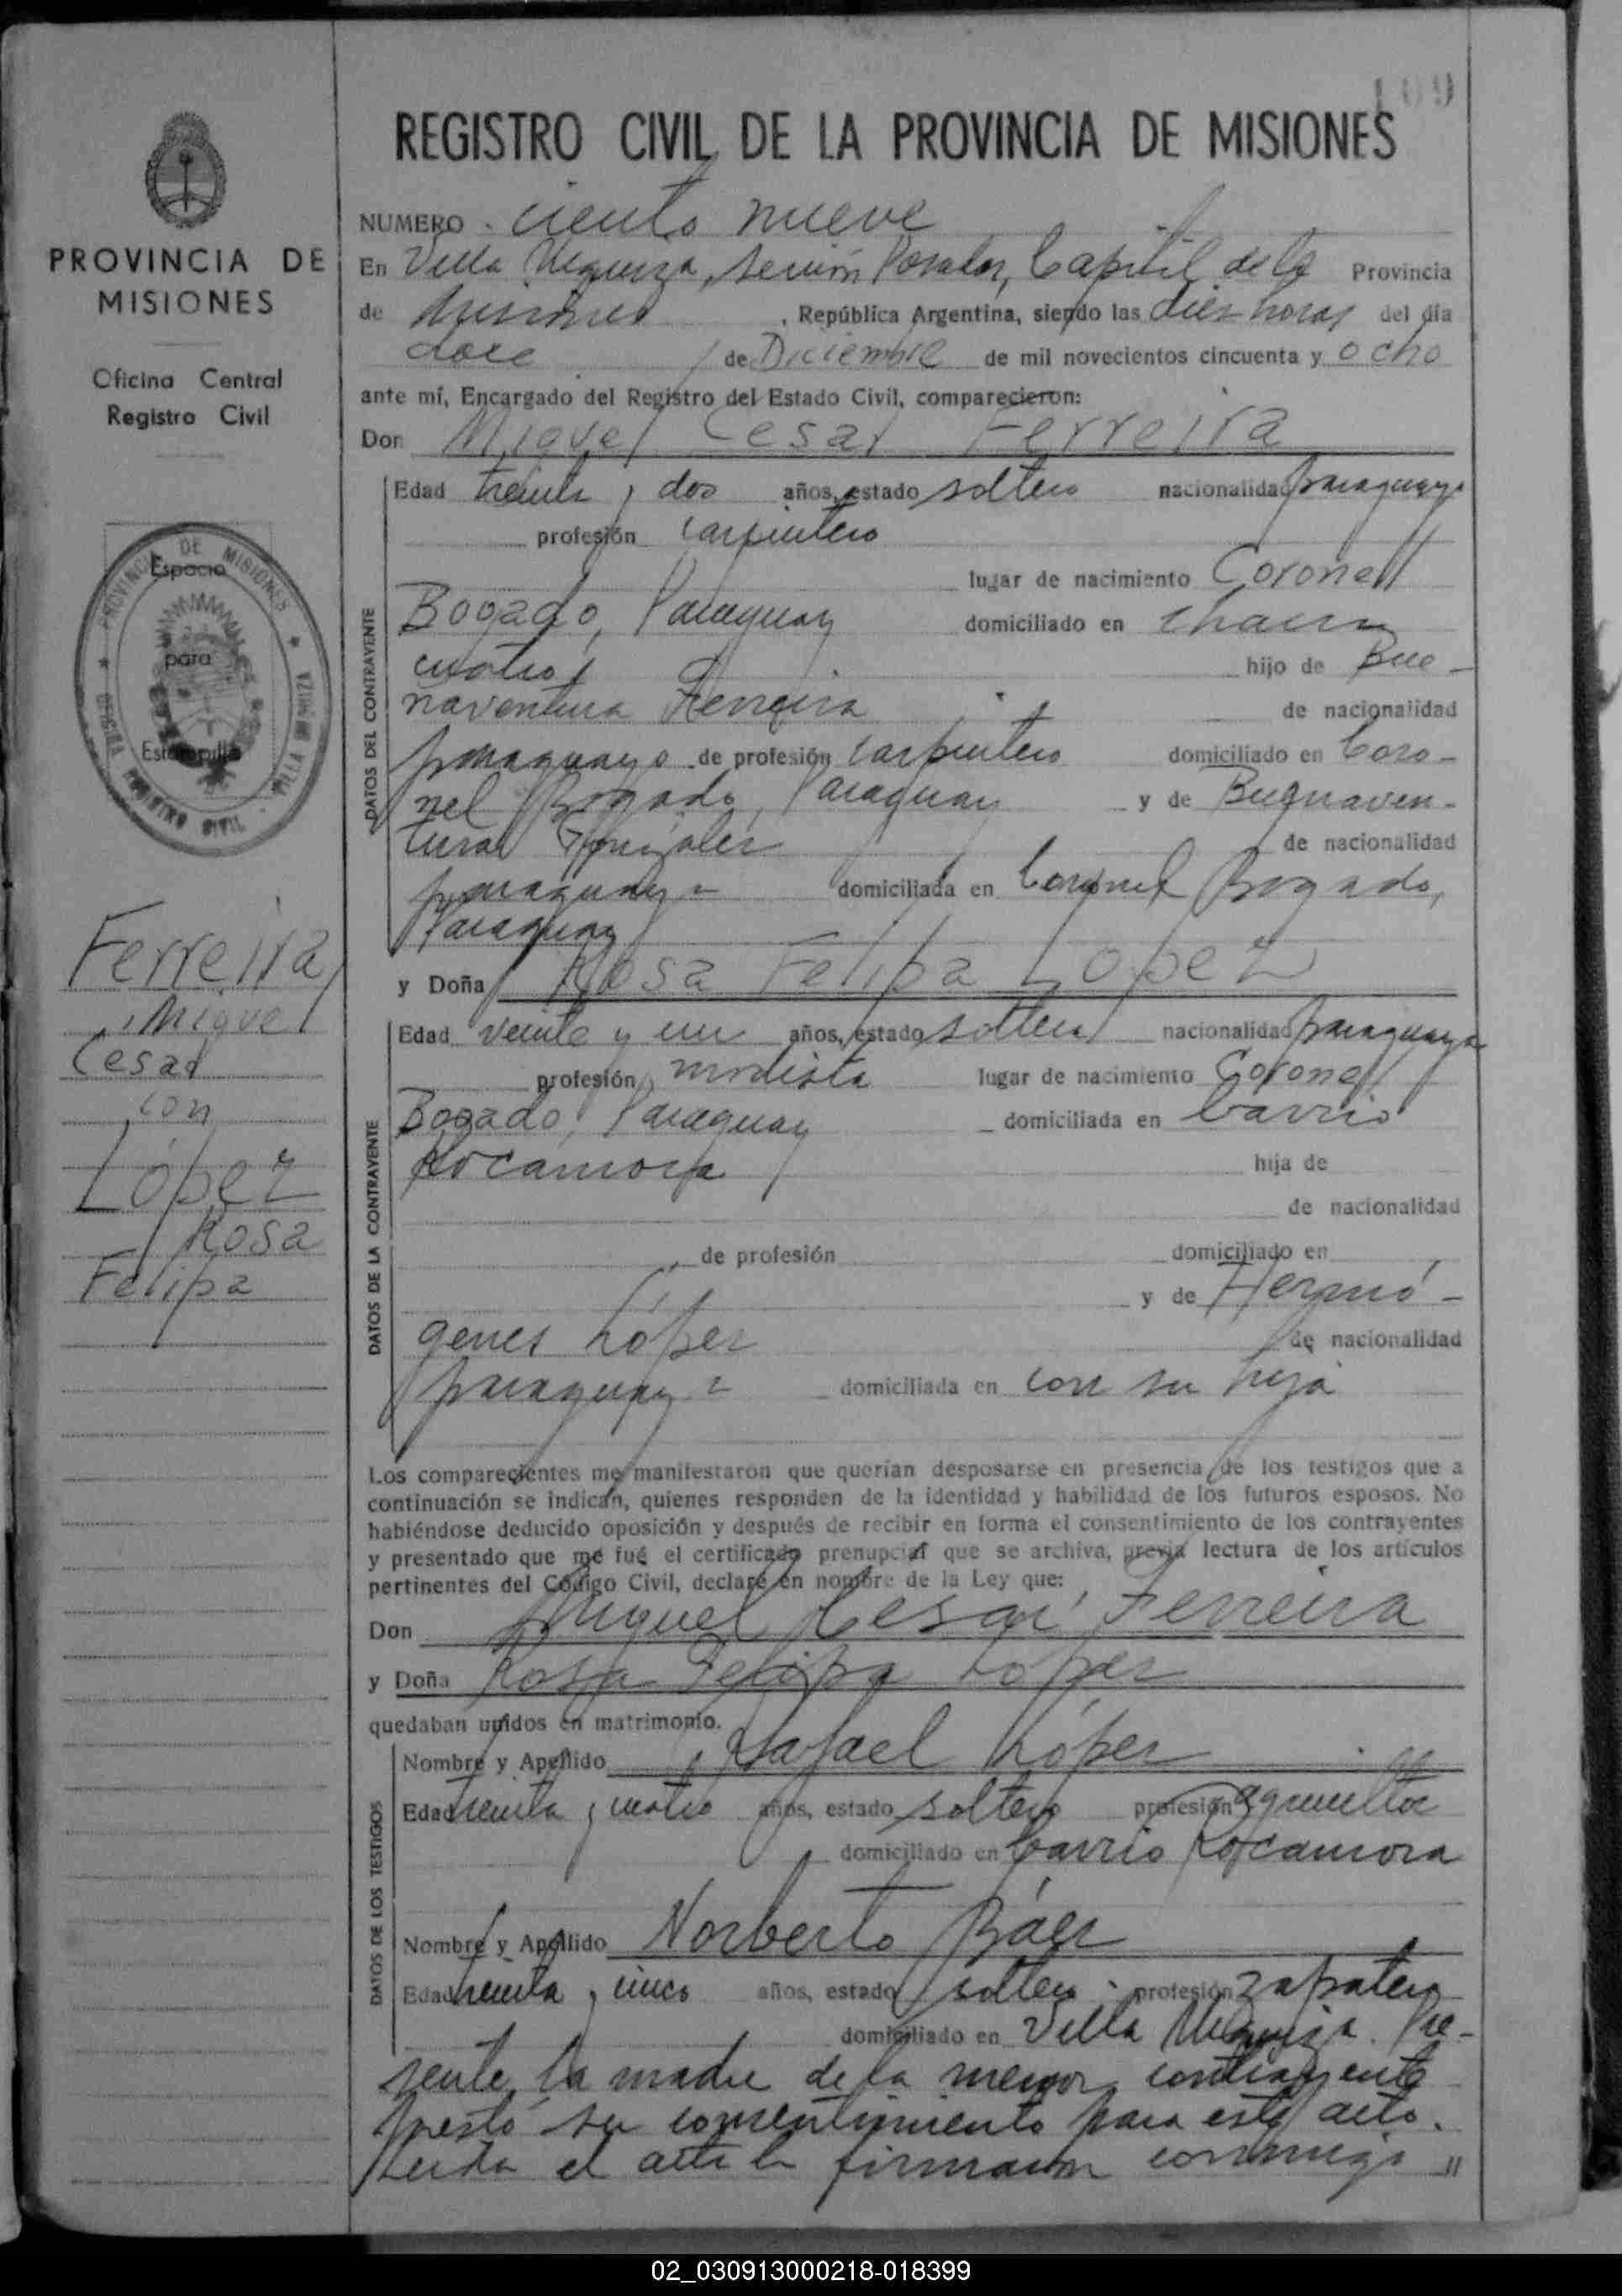 109
REGISTRO CIVIL DE LA PROVINCIA DE MISIONES
PROVINCIA DE
MISIONES
Oficina Central
Registro Civil
PROVINCIA DE MISIONES
Espacio
para
Estampilla
REGISTRO CIVIL
VILLA URQUIZA
Ferreira
Miguel
Cesar
con
López
Rosa
Felipa
NUMERO ciento nueve
En Villa Urquiza, sección Posadas, Capital de la Provincia
de Misiones, República Argentina, siendo las diez horas del día
doce de Diciembre de mil novecientos cincuenta y ocho
ante mí, Encargado del Registro del Estado Civil, comparecieron:
Don Miguel Cesar Ferreira
DATOS DEL CONTRAYENTE
Edad treinta y dos años, estado soltero nacionalidad paraguaya
profesión carpintero
lugar de nacimiento Coronel
Bogado, Paraguay domiciliado en chacra
cuatro hijo de Bue-
naventura Ferreira de nacionalidad
paraguayo de profesión carpintero domiciliado en Coro-
nel Bogado, Paraguay y de Buenaven-
tura González de nacionalidad
paraguaya domiciliada en Coronel Bogado,
Paraguay
y Doña Rosa Felipa López
DATOS DE LA CONTRAYENTE
Edad veinte y un años, estado soltera nacionalidad paraguaya
profesión modista lugar de nacimiento Coronel
Bogado, Paraguay domiciliada en barrio
Rocamora hija de
de nacionalidad
de profesión domiciliado en
y de Hermó-
genes López de nacionalidad
paraguaya domiciliada en con su hija
Los comparecientes me manifestaron que querían desposarse en presencia de los testigos que a
continuación se indican, quienes responden de la identidad y habilidad de los futuros esposos. No
habiéndose deducido oposición y después de recibir en forma el consentimiento de los contrayentes
y presentado que me fué el certificado prenupcial que se archiva, previa lectura de los artículos
pertinentes del Código Civil, declaré en nombre de la Ley que:
Don Miguel Cesar Ferreira
y Doña Rosa Felipa López
quedaban unidos en matrimonio.
DATOS DE LOS TESTIGOS
Nombre y Apellido Rafael López
Edad treinta y cuatro años, estado soltero profesión agricultor
domiciliado en barrio Rocamora
Nombre y Apellido Norberto Báez
Edad treinta y cinco años, estado soltero profesión zapatero
domiciliado en Villa Urquiza. Pre-
sente la madre de la menor contrayente
prestó su consentimiento para este acto.
Leida el acta la firmaron conmigo //
02_030913000218-018399